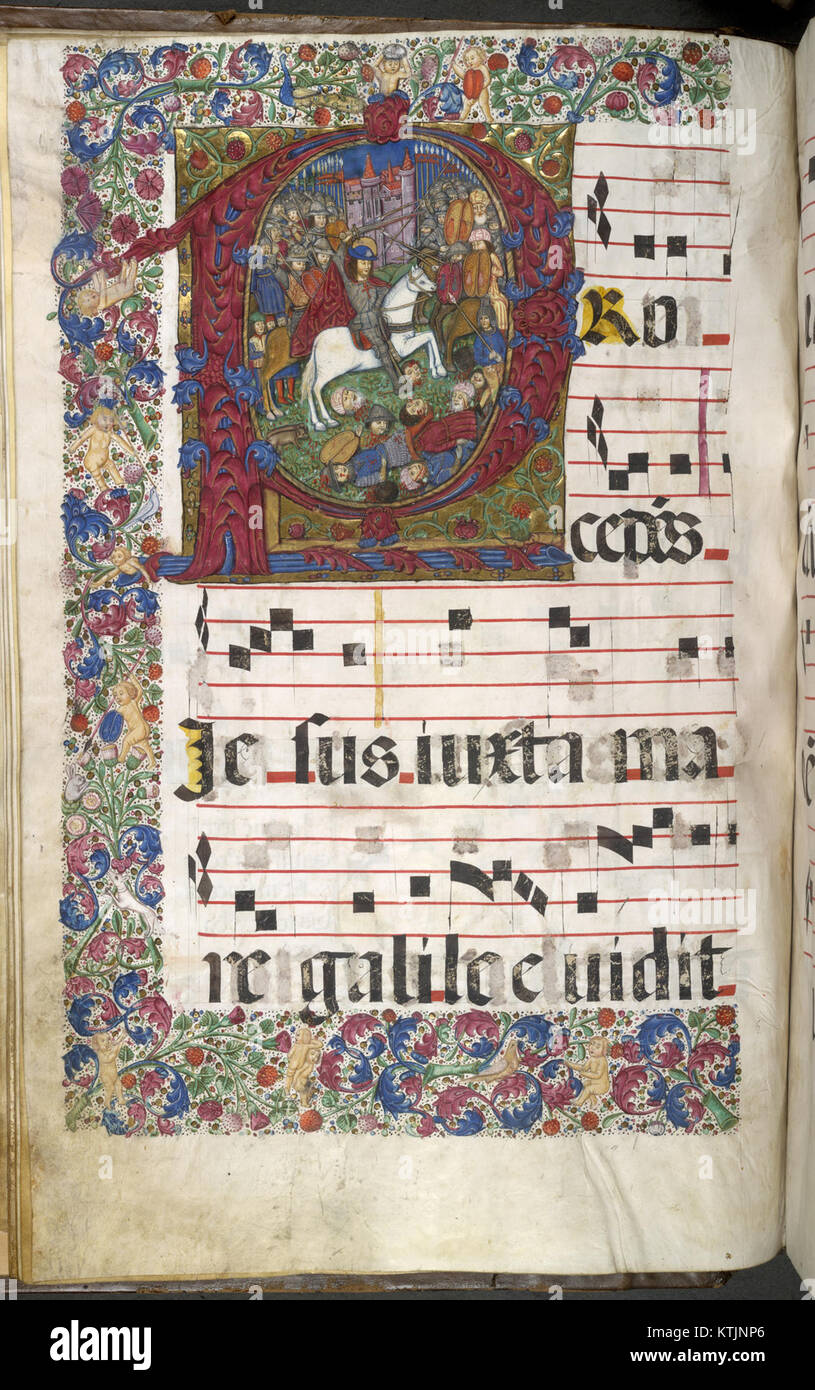 PRo
Je sus iuxta ma
re galilee uidit
alamy
Image ID: KTJNP6
www.alamy.com